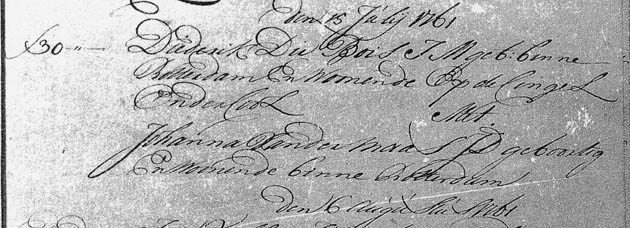 den 15 Julij 1761
f 30 -"-
Diderik Du Bois J M geb: binne
Rotterdam En Woonende Op de Cingel
Onder Cool
Met
Johanna Vander maas J D geboortig
En Woonende binne Rotterdam
den 16 Augustus 1761